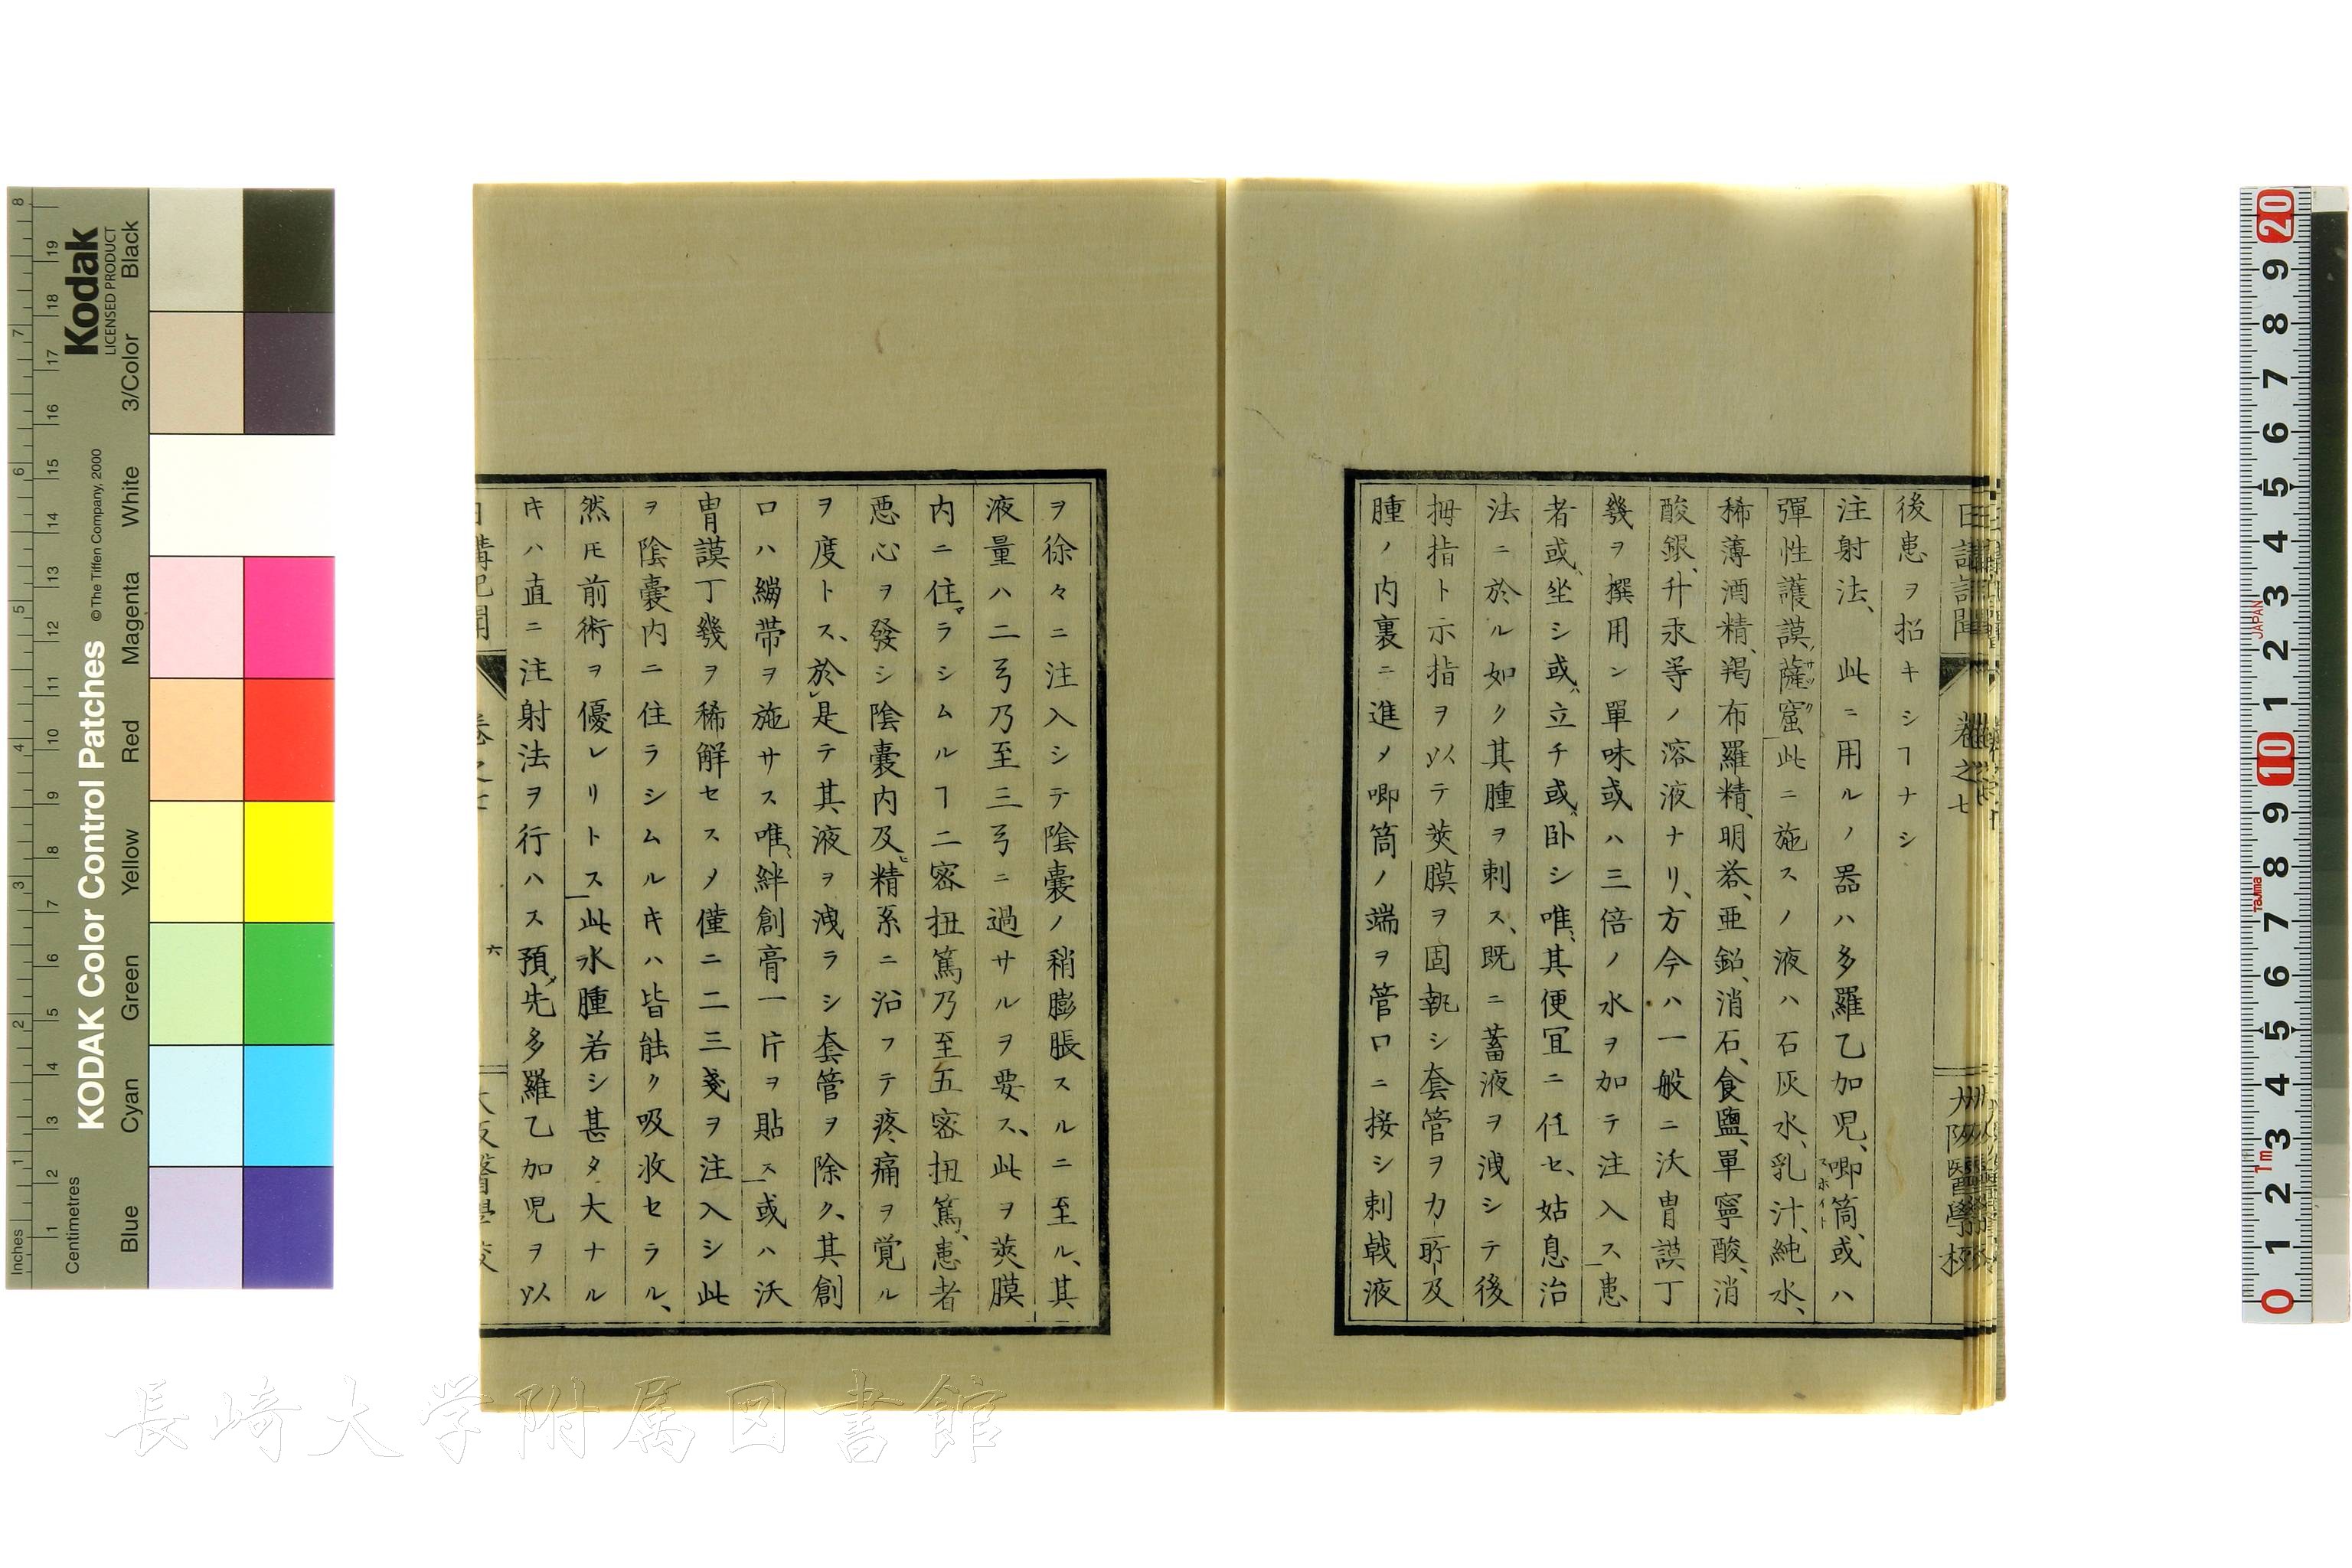 後患ヲ招キシヿナシ
注射法、 此ニ用ルノ器ハ多羅乙加児、喞筒、或ハ
スホイト
彈性護謨薩窟此ニ施スノ液ハ石灰水、乳汁、純水、
稀薄酒精、羯布羅精、明礬、亜鉛、消石、食鹽、單寧酸、消
酸銀、升汞等ノ溶液ナリ、方今ハ一般ニ沃胄謨丁
幾ヲ撰用シ單味或ハ三倍ノ水ヲ加テ注入ス患
者或坐シ或立チ或卧シ唯其便宜ニ任セ、姑息治
法ニ於ル如ク其腫ヲ刺ス、既ニ蓄液ヲ洩シテ後
拇指ト示指ヲ以テ莢膜ヲ固執シ套管ヲカ所及
腫ノ内裏ニ進メ喞筒ノ端ヲ管口ニ接シ刺戟液
ヲ徐々ニ注入シテ陰嚢ノ稍膨脹スルニ至ル、其
液量ハ二弓乃至三弓ニ過サルヲ要ス、此ヲ莢膜
内ニ住ラシムルヿ二密扭篤乃至五密扭篤、患者
悪心ヲ發シ陰嚢内及精系ニ沿フテ疼痛ヲ覚ル
ヲ度トス、於是テ其液ヲ洩ラシ套管ヲ除ク、其創
口ハ繃帯ヲ施サス唯絆創膏一片ヲ貼ス或ハ沃
胄謨丁幾ヲ稀解セスメ僅ニ二三戔ヲ注入シ此
ヲ陰嚢内ニ住ラシムルキハ皆能ク吸收セラル、
然𪜈前術ヲ優レリトス此水腫若シ甚タ大ナル
キハ直ニ注射法ヲ行ハス預先多羅乙加児ヲ以
卷之七
六
長崎大学附属図書館
KODAK Color Control Patches
©The Tiffen Company, 2000
Kodak
LICENSED PRODUCT
Inches
Centimetres
Blue
Cyan
Green
Yellow
Red
Magenta
White
3/Color
Black